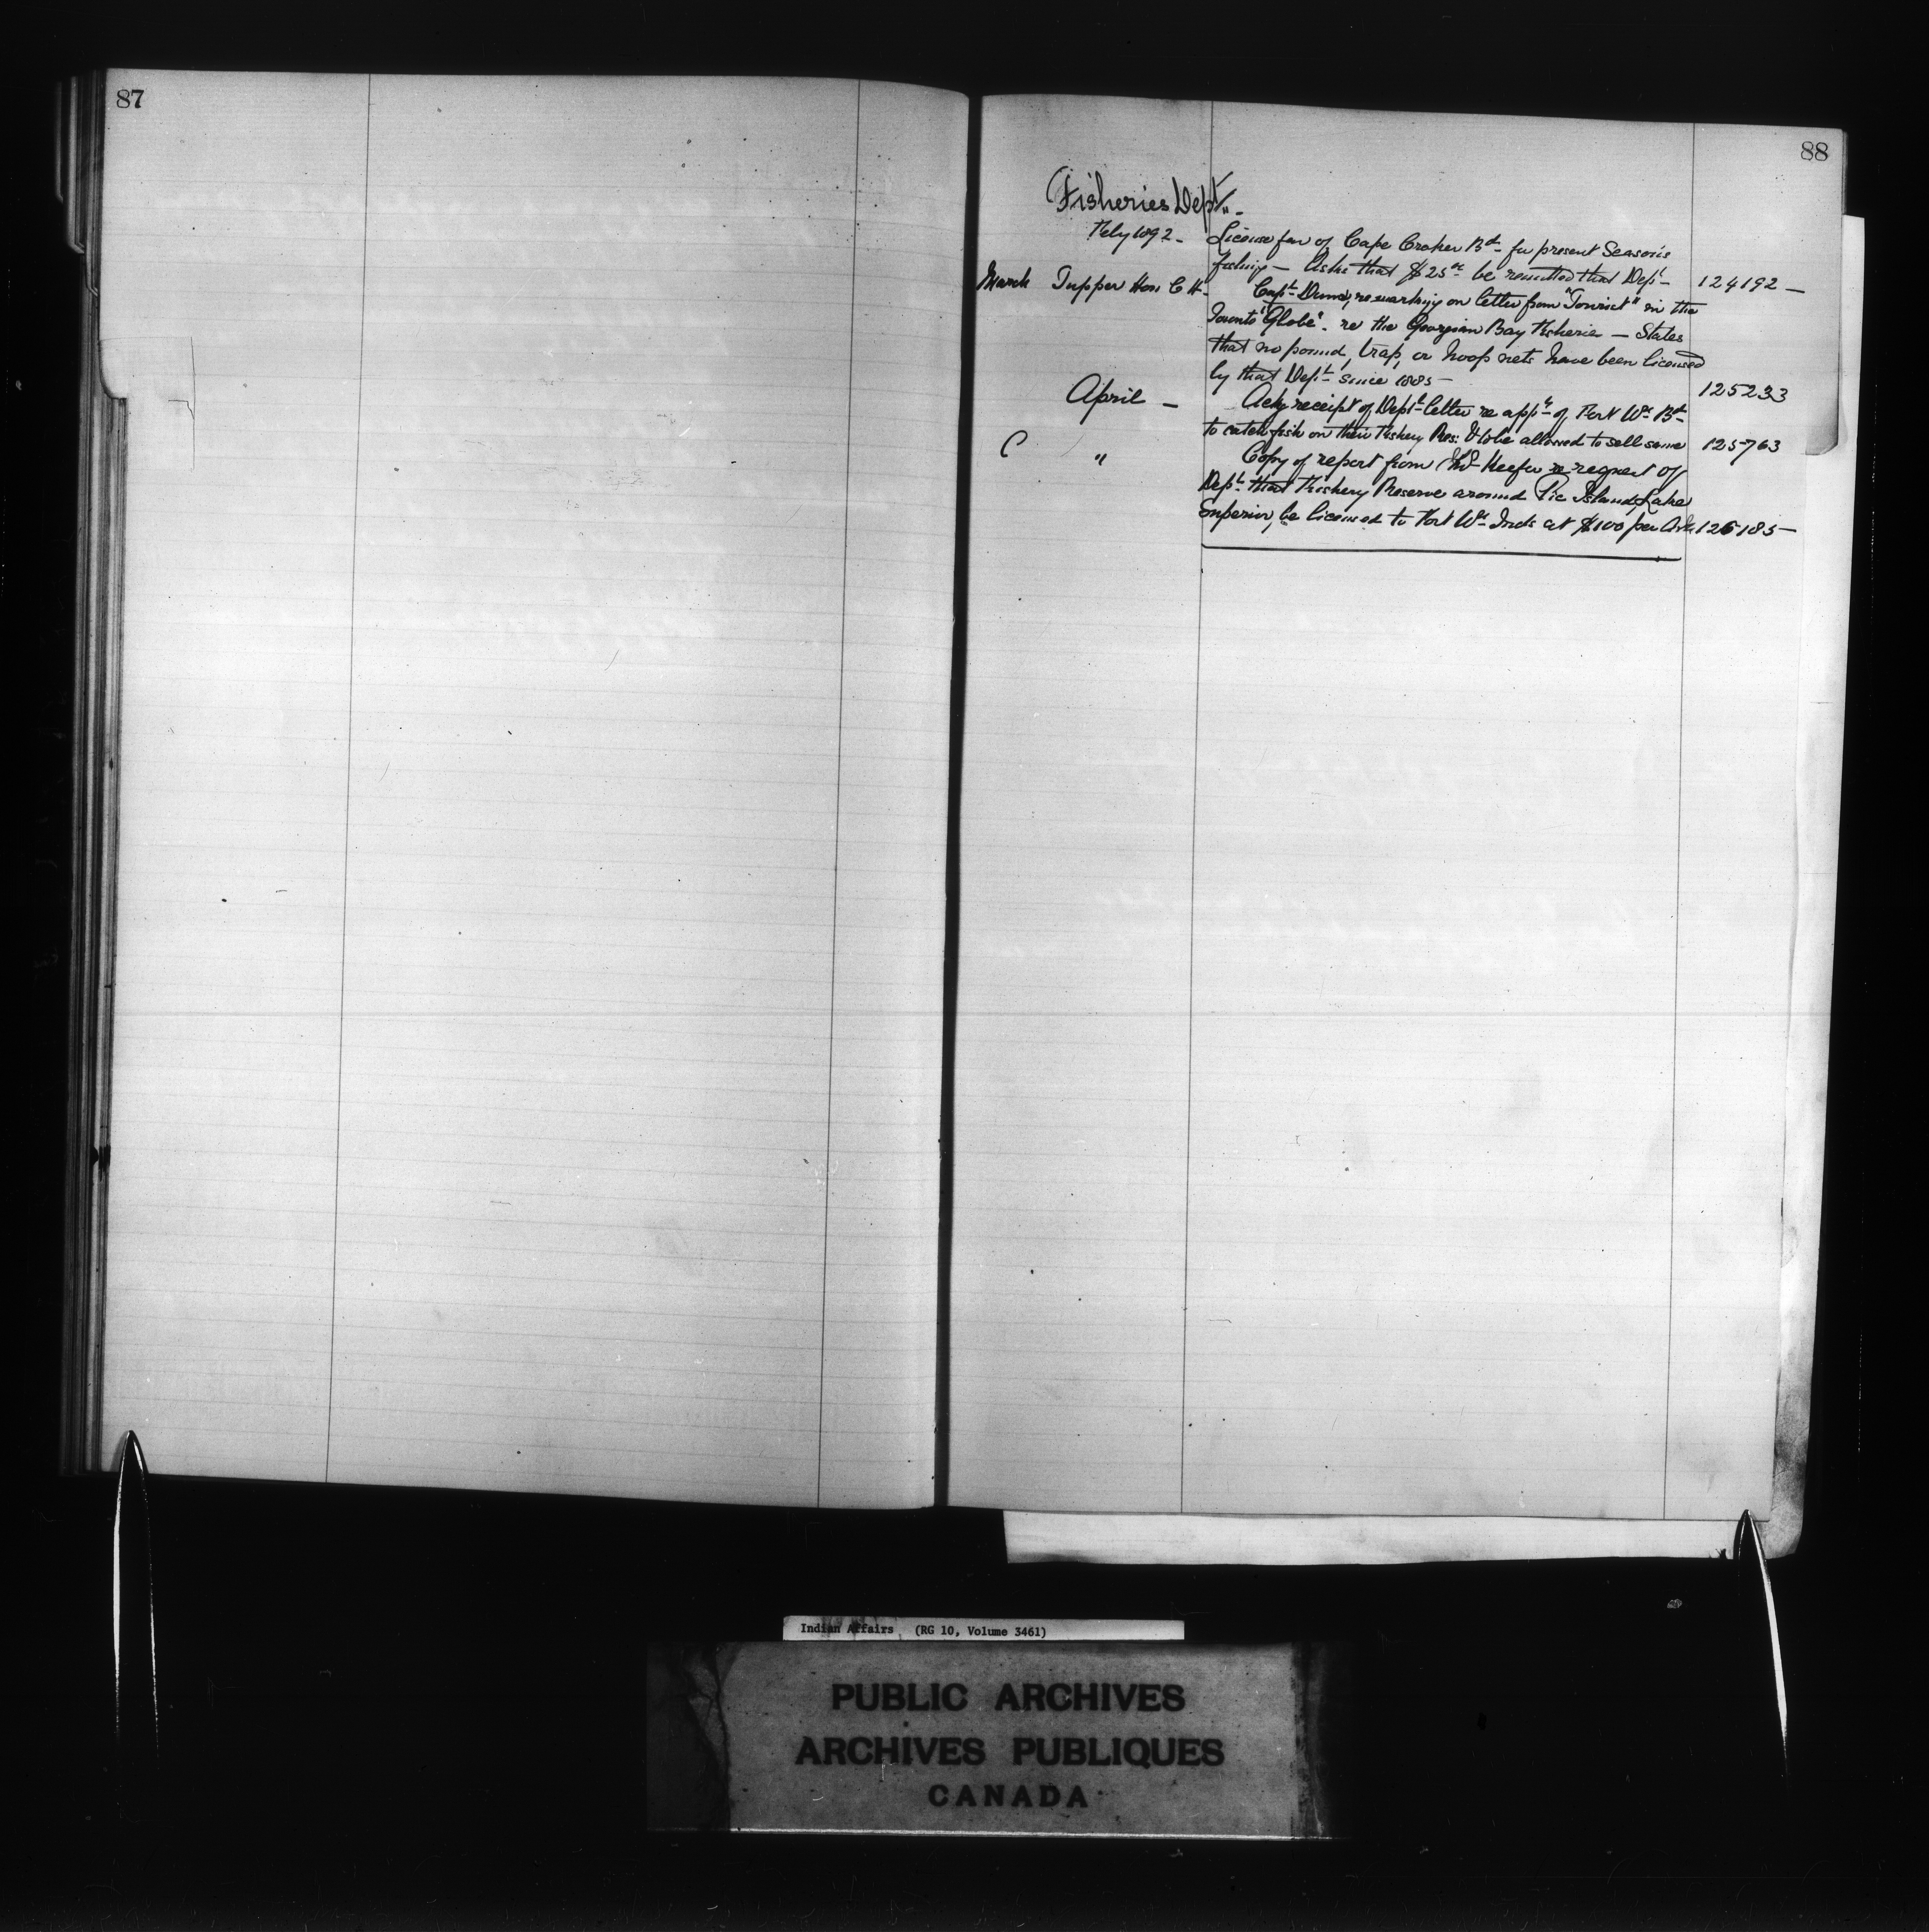 87
88
Fisheries Dept.
Feby 1892 - License fee of Cape Croker Bd. for present Season's
fishing - Asks that $25.00 be remitted that Dept. 124192 -
March Tupper Hon C H - Capt. Dunn, remarking on letter from "Tourist" in the
Toronto "Globe" re the Georgian Bay Fisherie - States
that no pound, trap, or hoop nets have been licensed
by that Dept. since 1885 - 125233
April - Ackg receipt of Dept. letter re appn. of Fort Wm. Bd.
to catch fish on their Fishery Res: & to be allowed to sell same 125763
C " Copy of report from Keefer re request of
Dept. that Fishery Reserve around Pic Island, Lake
Superior, be licensed to Fort Wm. Inds at $100 per 126185 -
Indian Affairs (RG 10, Volume 3461)
PUBLIC ARCHIVES
ARCHIVES PUBLIQUES
CANADA